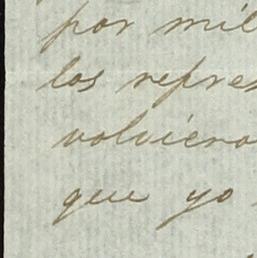 por mil
los repres
volviero
que yo